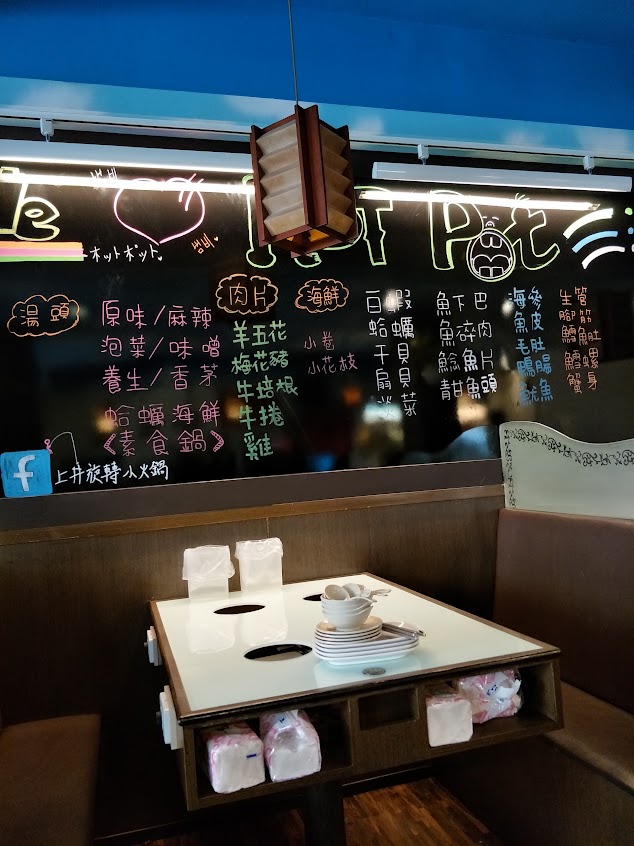 Pot
ホットポット
湯頭
原味/麻辣
泡菜/味噌
養生/香茅
蛤蠣海鮮
《素食鍋》
肉片
羊五花
梅花豬
牛培根
牛捲
雞
海鮮
小卷
小花枝
白蝦
蛤蠣
干貝
扇貝
淡菜
魚下巴
魚碎肉
鯰魚片
青甘魚頭
海參
魚皮
毛肚
鴨腸
魷魚
生管
腳筋
鱈魚肚
蟹身
f 上井旋轉小火鍋